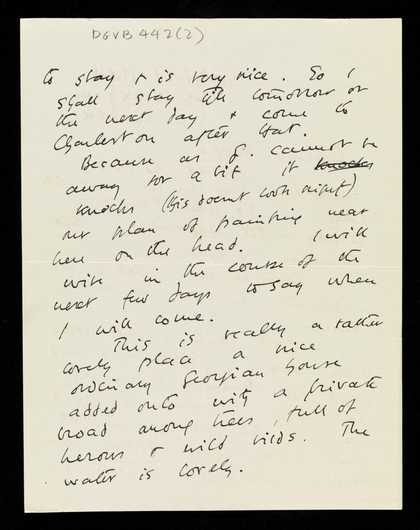 DGVB 442(2)
to stay & is very nice. So I
shall stay till tomorrow or
the next day & come to
Charleston after that.
Because as J. cannot be
away for a bit it knocks
knocks (this doesnt look right)
our plan of painting near
here on the head. I will
wire in the course of the
next few days to say when
I will come.
This is really a rather
lovely place a nice
ordinary Georgian house
added onto with a private
broad among trees, full of
herons & wild birds. The
water is lovely.